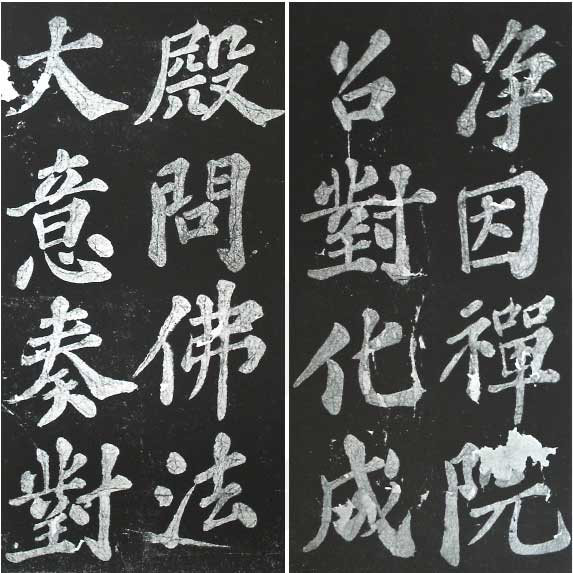 淨因禪院
召對化成
殿問佛法
大意奏對